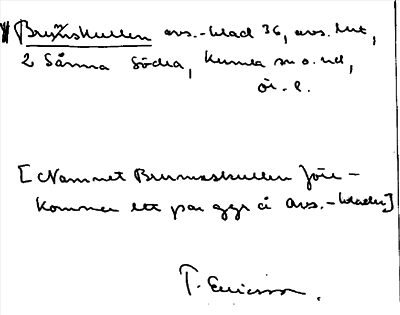 Brunnskullen avs.-blad 36, avs. lut,
2 Sånna Södra, Kumla sn o. hd,
ör. l.
[Namnet Brunnskullen före-
kommer ett par ggr å avs.-bladen]
T. Ericsson.